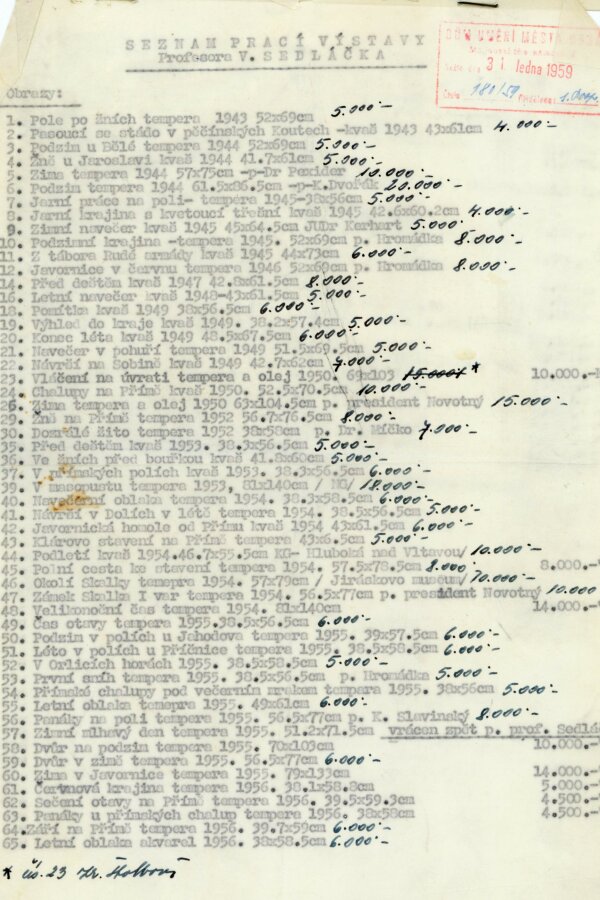 SEZNAM PRACÍ VÝSTAVY
Profesora V. SEDLÁČKA
DŮM UMĚNÍ MĚSTA
31. ledna 1959
181/59
Obrazy:
1. Pole po žních tempera 1943 52x69cm 5.000·-
2. Pasoucí se stádo v pěčínských Koutech -kvaš 1943 43x61cm 4.000·-
3. Podzim u Bělé tempera 1944 52x69cm 5.000·-
4. Žně u Jaroslavi kvaš 1944 41.7x61cm 5.000·-
5. Zima tempera 1944 57x75cm -p-Dr Pexider 10.000·-
6. Podzim tempera 1944 61.5x86.5cm -p-K.Dvořák 20.000·-
7. Jarní práce na poli- tempera 1945-38x56cm 5.000·-
8. Jarní krajina s kvetoucí třešní kvaš 1945 42.6x60.2cm 4.000·-
9. Zimní navečer kvaš 1945 45x64.5cm JUDr Kerhart 5.000·-
10. Podzimní krajina -tempera 1945. 52x69cm p. Hromádka 8.000·-
11. Z tábora Rudé armády kvaš 1945 44x73cm 6.000·-
12. Javornice v červnu tempera 1946 52x69cm p. Hromádka 8.000·-
14. Před deštěm kvaš 1947 42.8x61.5cm 8.000·-
16. Letní navečer kvaš 1948-43x61.5cm 5.000·-
18. Pomítka kvaš 1949 38x56.5cm 6.000·-
19. Výhled do kraje kvaš 1949. 38.2x57.4cm 5.000·-
20. Konec léta kvaš 1949 48.5x67.5cm 6.000·-
21. Navečer v pohuří tempera 1949 51.5x69.5cm 5.000·-
22. Návrší na Sobině kvaš 1949 42.7x62cm 7.000·-
23. Vláčení na úvrati tempera a olej 1950. 69x103 15.000 * 10.000.-
24. Chalupy na Přímě kvaš 1950. 52.5x70.5cm 10.000·-
26. Zima tempera a olej 1950 63x104.5cm p. president Novotný 15.000·-
29. Žně na Přímě tempera 1952 56.7x76.5cm 8.000·-
30. Dozrálé žito tempera 1952 38x58cm p. Dr. Míčko 7.000·-
35. Před deštěm kvaš 1953. 38.3x56.5cm 5.000·-
36. Ve žních před bouřkou kvaš 41.8x60cm 5.000·-
37. V přímských polích kvaš 1953. 38.3x56.5cm 6.000·-
39. V masopustu tempera 1953, 81x140cm / NG/ 18.000·-
40. Navečerní oblaka tempera 1954. 38.3x58.5cm 6.000·-
41. Návrší v Dolích v létě tempera 1954. 38.5x56.5cm 5.000·-
42. Javornická homole od Přímu kvaš 1954 43x61.5cm 6.000·-
43. Klárovo stavení na Přímě tempera 43x6.5cm 5.000·-
44. Podletí kvaš 1954.46.7x55.5cm KG- Hluboká nad Vltavou/ 10.000·-
45. Polní cesta ke stavení tempera 1954. 57.5x78.5cm 8.000 8.000.-
46. Okolí Skalky temepra 1954. 57x79cm / Jiráskovo museum/ 10.000·-
47. Zámek Skalka I var tempera 1954. 56.5x77cm p. president Novotný 10.000
48. Velikonoční čas tempera 1954. 81x140cm 14.000.-
49. Čas otavy tempera 1955.38.5x56.5cm 6.000·-
50. Podzim v polích u Jahodova tempera 1955. 39x57.5cm 6.000·-
51. Léto v polích u Příčnice tempera 1955. 38.5x58.5cm 6.000·-
52. V Orlicích horách 1955. 38.5x58.5cm 5.000·-
53. První sníh tempera 1955. 38.5x56.5cm p. Hromádka 5.000·-
54. Přímské chalupy pod večerním mrakem tempera 1955. 38x56cm 5.000·-
55. Letní oblaka temepra 1955. 49x61cm 6.000·-
56. Panáky na poli tempera 1955. 56.5x77cm p. K. Slavinský 8.000·-
57. Zimní mlhavý den tempera 1955. 51.2x71.5cm vrácen zpět p. prof. Sedlá
58. Dvůr na podzim tempera 1955. 70x103cm 10.000.-
59. Dvůr v zimě tempera 1955. 56.5x77cm 6.000·-
60. Zima v Javornice tempera 1955. 79x133cm 14.000.-
61. Čertnová krajina tempera 1956. 38.1x58.8cm 5.000.-
62. Sečení otavy na Přímě tempera 1956. 39.5x59.3cm 4.500.-
63. Panáky u přímských chalup tempera 1956. 38x58cm 4.500.-
64.Září na Přímě tempera 1956. 39.7x59cm 6.000·-
65. Letní oblaka akvarel 1956. 38x58.5cm 6.000·-
* čís. 23